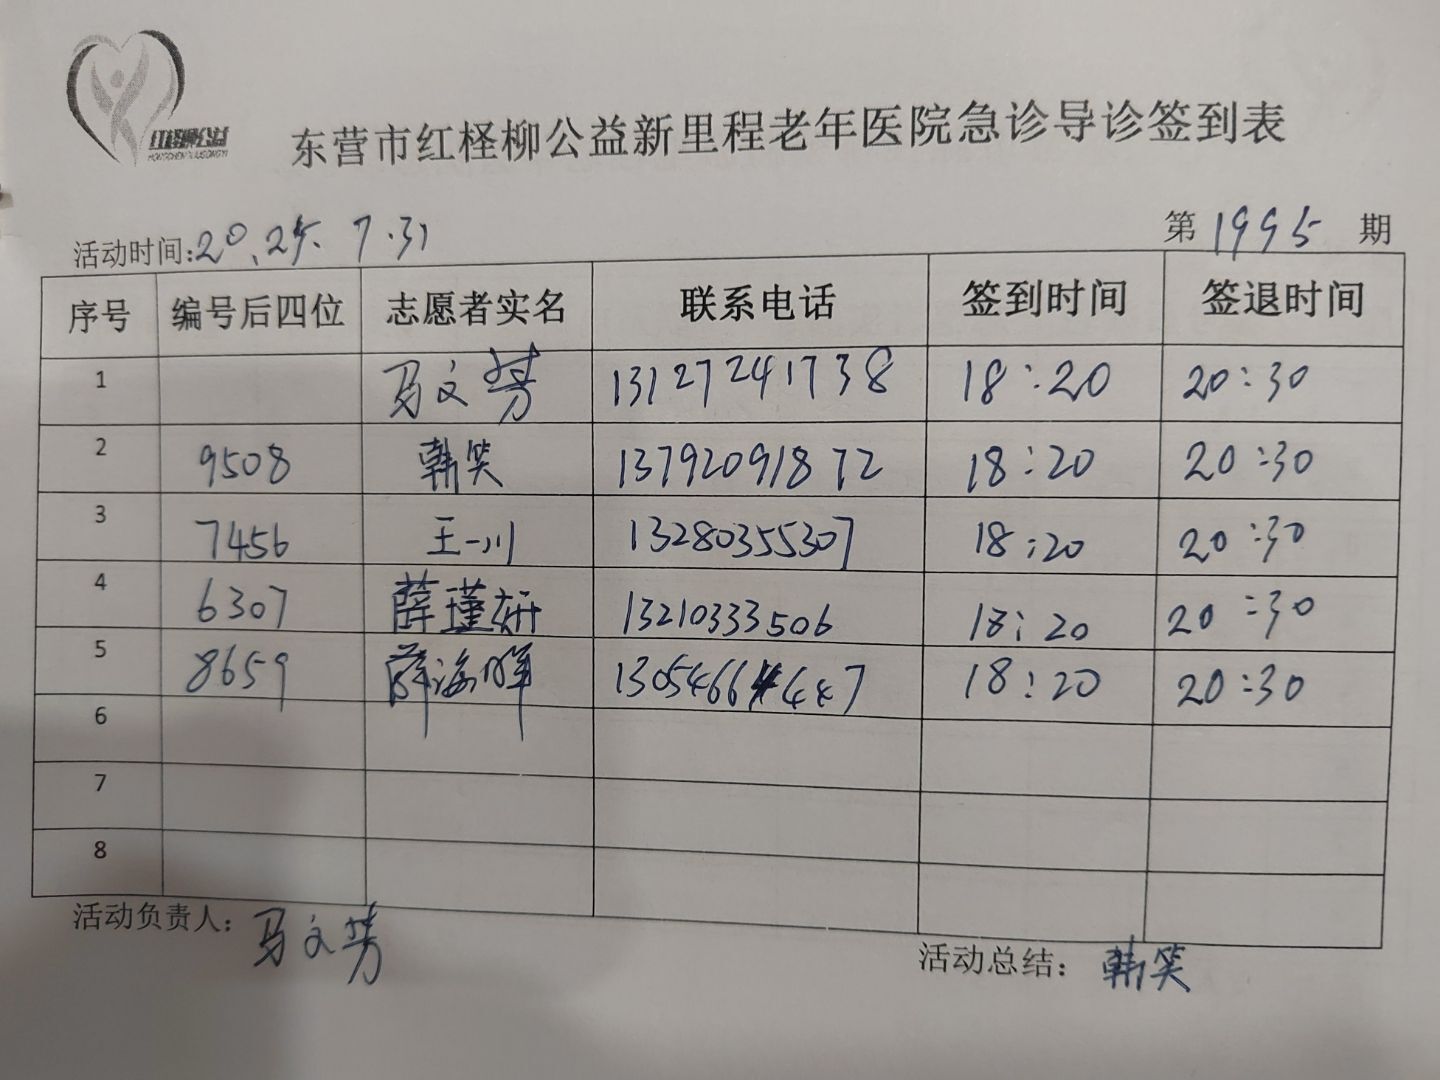 红柽柳公益
HONGCHENGLIUGONGYI
东营市红柽柳公益新里程老年医院急诊导诊签到表
活动时间:20.25. 7.31 第 1995 期
序号 编号后四位 志愿者实名 联系电话 签到时间 签退时间
1 马文芳 13127241738 18:20 20:30
2 9508 韩笑 13792091872 18:20 20:30
3 7456 王一川 13280355307 18:20 20:30
4 6307 薛瑾妍 13210333506 18:20 20:30
5 8659 薛海晖 1305466 6447 18:20 20:30
6
7
8
活动负责人: 马文芳
活动总结: 韩笑